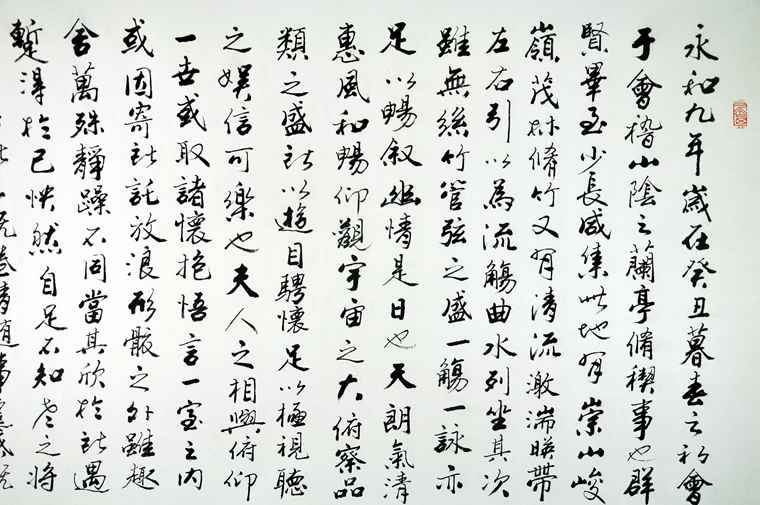 永和九年歲在癸丑暮春之初會
于會稽山陰之蘭亭脩稧事也群
賢畢至少長咸集此地有崇山峻
嶺茂林脩竹又有清流激湍暎帶
左右引以為流觴曲水列坐其次
雖無絲竹管弦之盛一觴一詠亦
足以暢叙幽情是日也天朗氣清
惠風和暢仰觀宇宙之大俯察品
類之盛所以遊目騁懷足以極視聽
之娛信可樂也夫人之相與俯仰
一世或取諸懷抱悟言一室之内
或因寄所託放浪形骸之外雖趣
舍萬殊靜躁不同當其欣於所遇
蹔得於己怏然自足不知老之將
情隨事